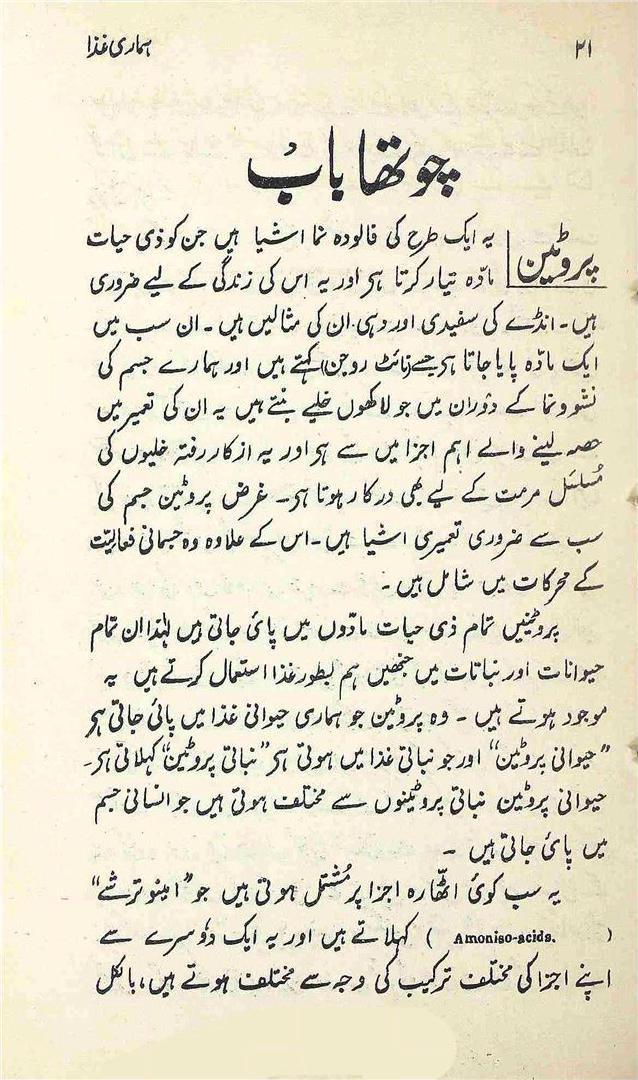 ۲۱
ہماری غذا
چوتھا باب
پروٹین
یہ ایک طرح کی فالودہ نما اشیا ہیں جن کو ذی حیات
مادّہ تیار کرتا ہر اور یہ اس کی زندگی کے لیے ضروری
ہیں۔ انڈے کی سفیدی اور دہی ان کی مثالیں ہیں۔ ان سب میں
ایک مادّہ پایا جاتا ہر جسے (نائٹ روجن) کہتے ہیں اور ہمارے جسم کی
نشوونما کے دوران میں جو لاکھوں خلیے بنتے ہیں یہ ان کی تعمیر میں
حصہ لینے والے اہم اجزا میں سے ہر اور یہ از کار رفتہ خلیوں کی
مُسلسَل مرمت کے لیے بھی درکار ہوتا ہر۔ غرض پروٹین جسم کی
سب سے ضروری تعمیری اشیا ہیں۔ اس کے علاوہ وہ جسمانی فعالیّت
کے محرکات میں شامل ہیں۔
پروٹینیں تمام ذی حیات مادّوں میں پائی جاتی ہیں لہٰذا ان تمام
حیوانات اور نباتات میں جنھیں ہم بطور غذا استعمال کرتے ہیں یہ
موجود ہوتے ہیں۔ وہ پروٹین جو ہماری حیوانی غذا میں پائی جاتی ہر
”حیوانی پروٹین“ اور جو نباتی غذا میں ہوتی ہر ”نباتی پروٹین“ کہلاتی ہر۔
حیوانی پروٹین نباتی پروٹینوں سے مختلف ہوتی ہیں جو انسانی جسم
میں پائی جاتی ہیں۔
یہ سب کوئی اٹھّارہ اجزا پر مُشتمل ہوتی ہیں جو ”امینو ترشے“
( Amoniso-acids. ) کہلاتے ہیں اور یہ ایک دوسرے سے
اپنے اجزا کی مختلف ترکیب کی وجہ سے مختلف ہوتے ہیں، بالکل